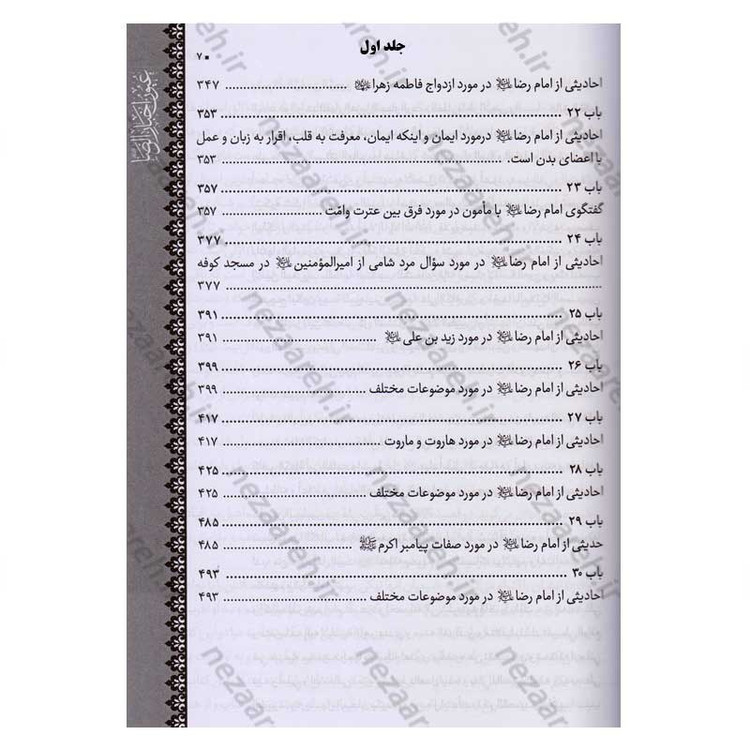 جلد اول
۷ •
احادیثی از امام رضا علیه‌السلام در مورد ازدواج فاطمه زهرا علیها‌السلام .......... ۳۴۷
باب ۲۲ .......... ۳۵۳
احادیثی از امام رضا علیه‌السلام درمورد ایمان و اینکه ایمان، معرفت به قلب، اقرار به زبان و عمل
با اعضای بدن است. .......... ۳۵۳
باب ۲۳ .......... ۳۵۷
گفتگوی امام رضا علیه‌السلام با مأمون در مورد فرق بین عترت وامّت .......... ۳۵۷
باب ۲۴ .......... ۳۷۷
احادیثی از امام رضا علیه‌السلام در مورد سؤال مرد شامی از امیرالمؤمنین علیه‌السلام در مسجد کوفه
.......... ۳۷۷
باب ۲۵ .......... ۳۹۱
احادیثی از امام رضا علیه‌السلام در مورد زید بن علی علیه‌السلام .......... ۳۹۱
باب ۲۶ .......... ۳۹۹
احادیثی از امام رضا علیه‌السلام در مورد موضوعات مختلف .......... ۳۹۹
باب ۲۷ .......... ۴۱۷
احادیثی از امام رضا علیه‌السلام در مورد هاروت و ماروت .......... ۴۱۷
باب ۲۸ .......... ۴۲۵
احادیثی از امام رضا علیه‌السلام در مورد موضوعات مختلف .......... ۴۲۵
باب ۲۹ .......... ۴۸۵
حدیثی از امام رضا علیه‌السلام در مورد صفات پیامبر اکرم ﷺ .......... ۴۸۵
باب ۳۰ .......... ۴۹۳
احادیثی از امام رضا علیه‌السلام در مورد موضوعات مختلف .......... ۴۹۳
عیون اخبار الرضا
nezaareh.ir